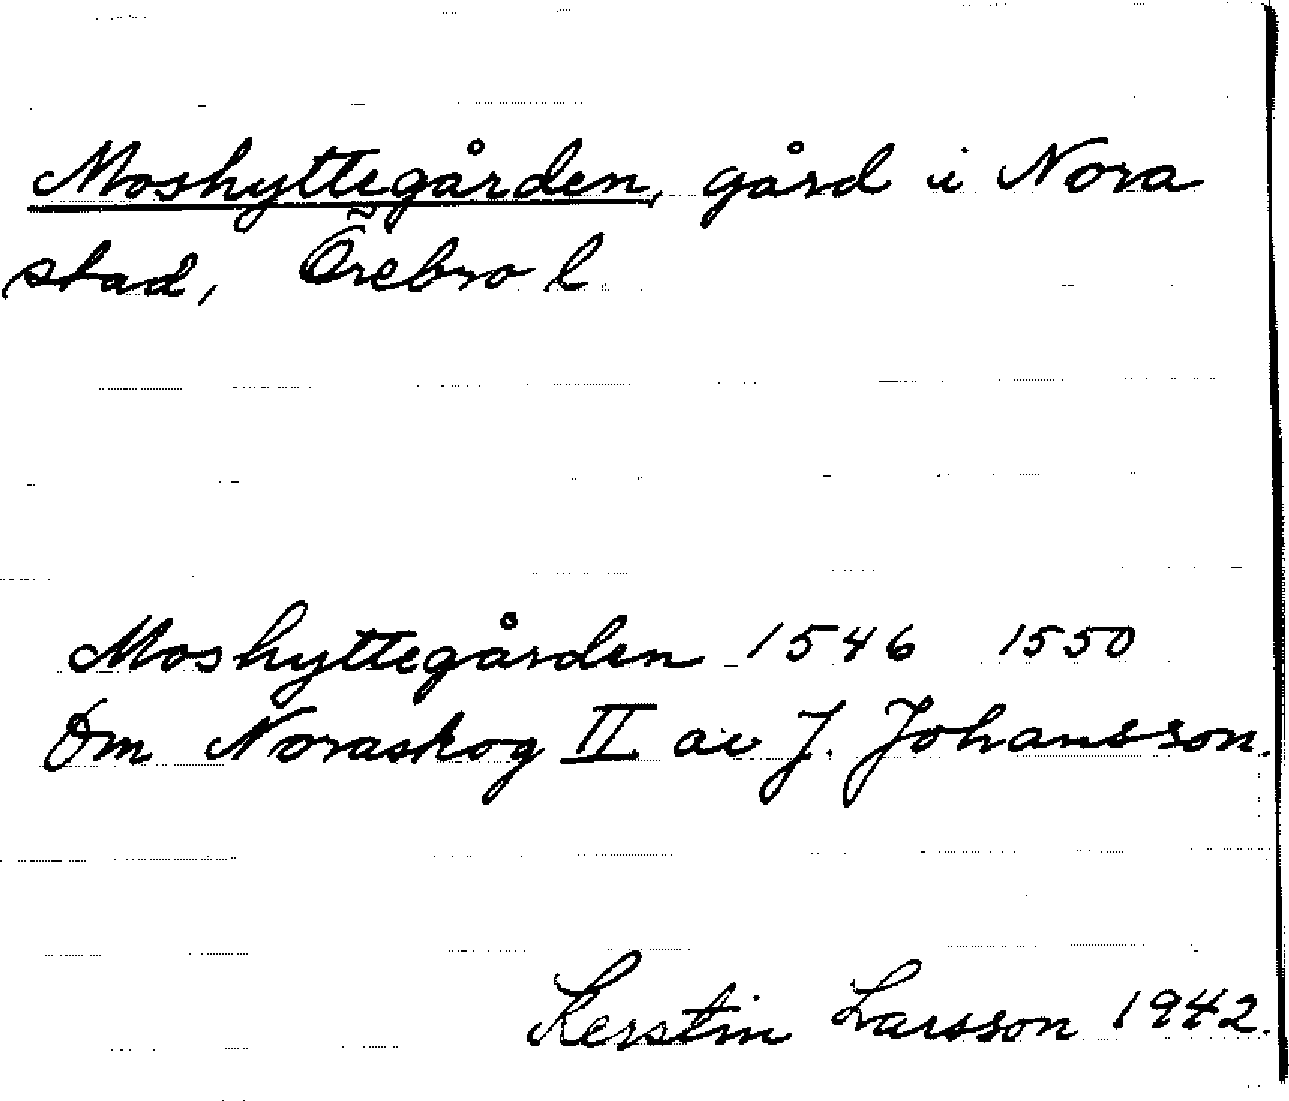 Moshyttegården, gård i Nora
stad, Örebro l.
Moshyttegården 1546 1550
Om Noraskog II av J. Johansson.
Kerstin Larsson 1942.